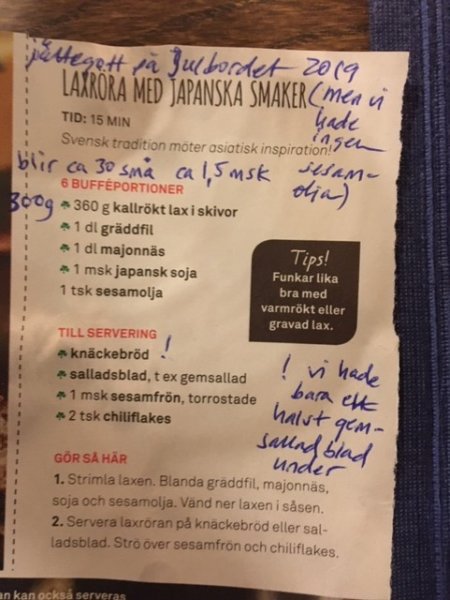 jättegott på Julbordet 2019
LAXRÖRA MED JAPANSKA SMAKER
(men vi
hade
ingen
sesam-
olja)
TID: 15 MIN
Svensk tradition möter asiatisk inspiration!
blir ca 30 små ca 1,5 msk
6 BUFFÉPORTIONER
300g
360 g kallrökt lax i skivor
1 dl gräddfil
1 dl majonnäs
1 msk japansk soja
1 tsk sesamolja
Tips!
Funkar lika
bra med
varmrökt eller
gravad lax.
TILL SERVERING
knäckebröd !
salladsblad, t ex gemsallad
1 msk sesamfrön, torrostade
2 tsk chiliflakes
! vi hade
bara ett
halvt gem-
sallad blad
under
GÖR SÅ HÄR
1. Strimla laxen. Blanda gräddfil, majonnäs,
soja och sesamolja. Vänd ner laxen i såsen.
2. Servera laxröran på knäckebröd eller sal-
ladsblad. Strö över sesamfrön och chiliflakes.
an kan också serveras